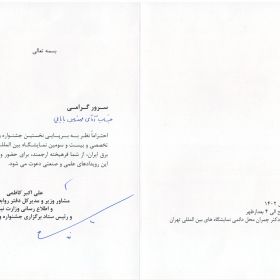 بسمه تعالی
سرور گرامی
جناب آقای مهندس بابایی
احتراماً نظر به برپایی نخستین جشنواره
تخصصی و بیست و سومین نمایشگاه بین المللی
برق ایران، از شما فرهیخته ارجمند، برای حضور و
این رویدادهای علمی و صنعتی دعوت می شود.
علی اکبر کاظمی
مشاور وزیر و مدیرکل دفتر
و اطلاع رسانی وزارت
و رئیس ستاد برگزاری جشنواره و
۱۴۰۲
الی ۴ بعدازظهر
دکتر چمران محل دائمی نمایشگاه های بین المللی تهران